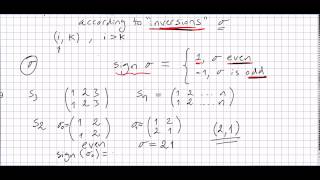 according to "inversions" σ
(i, k) , i > k
σ sign σ = { 1, σ even
-1, σ is odd
S3 (1 2 3
1 2 3) Sn = (1 2 ... n
1 2 ... n)
S2 σ0 = (1 2
1 2) σ1 = (1 2
2 1) (2,1)
even σ = 21
sign (σ0) =